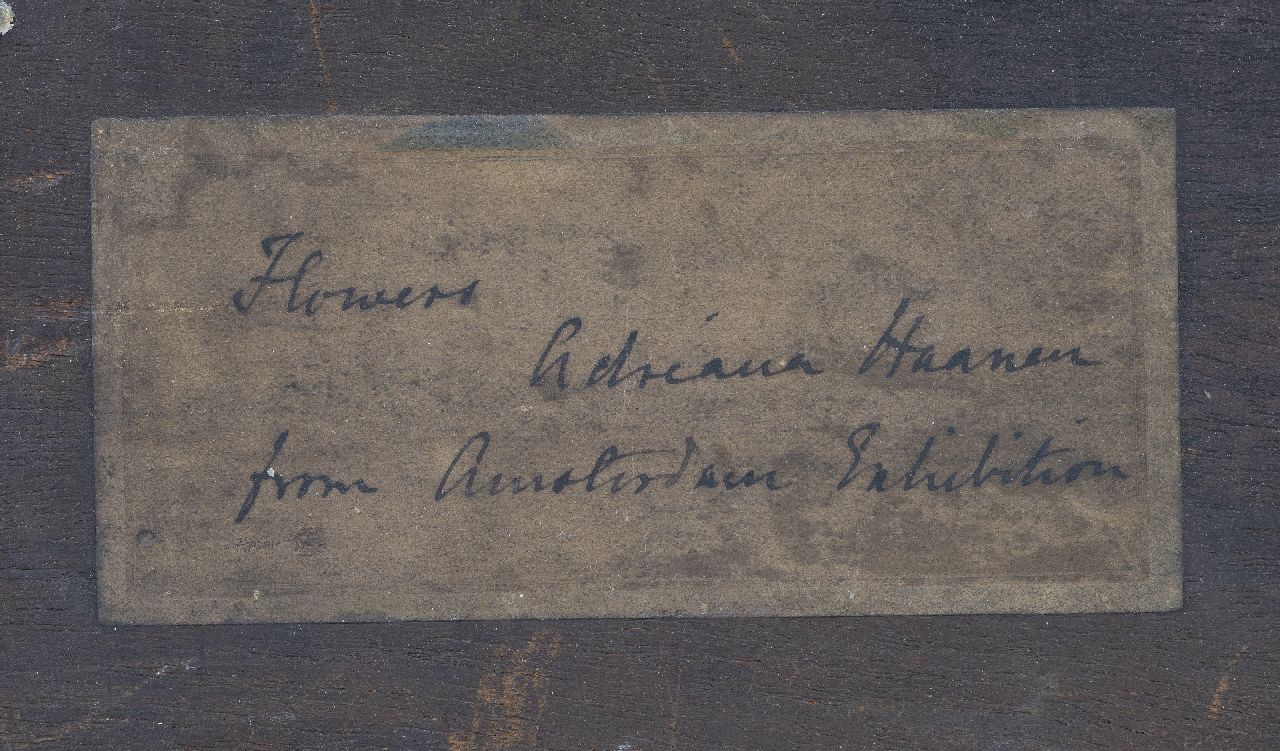 Flowers
Adriana Haanen
from Amsterdam Exhibition